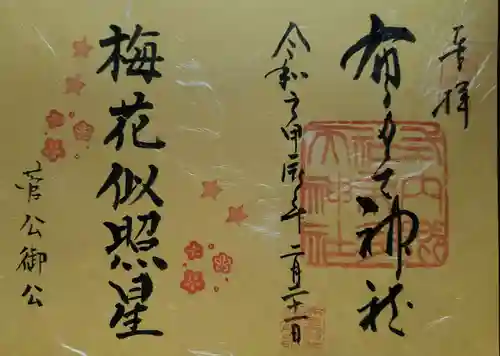 奉拝
布多天神社
令和六甲辰年 二月二十一日
梅花似照星
菅公御